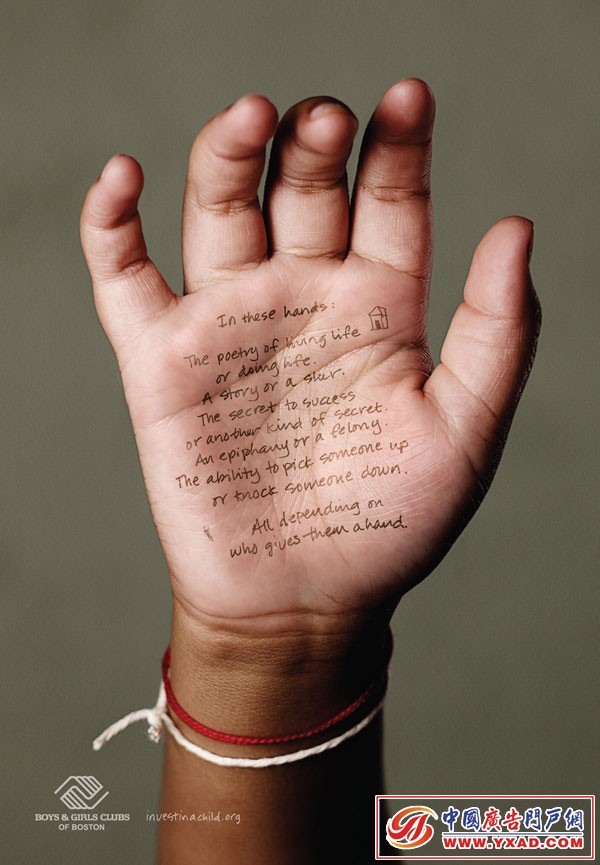 In these hands:
The poetry of living life
or doing life.
A story or a slur.
The secret to success
or another kind of secret.
An epiphany or a felony.
The ability to pick someone up
or knock someone down.
All depending on
who gives them a hand.
BOYS & GIRLS CLUBS
OF BOSTON
investinachild.org
中國廣告門戶網
WWW.YXAD.COM